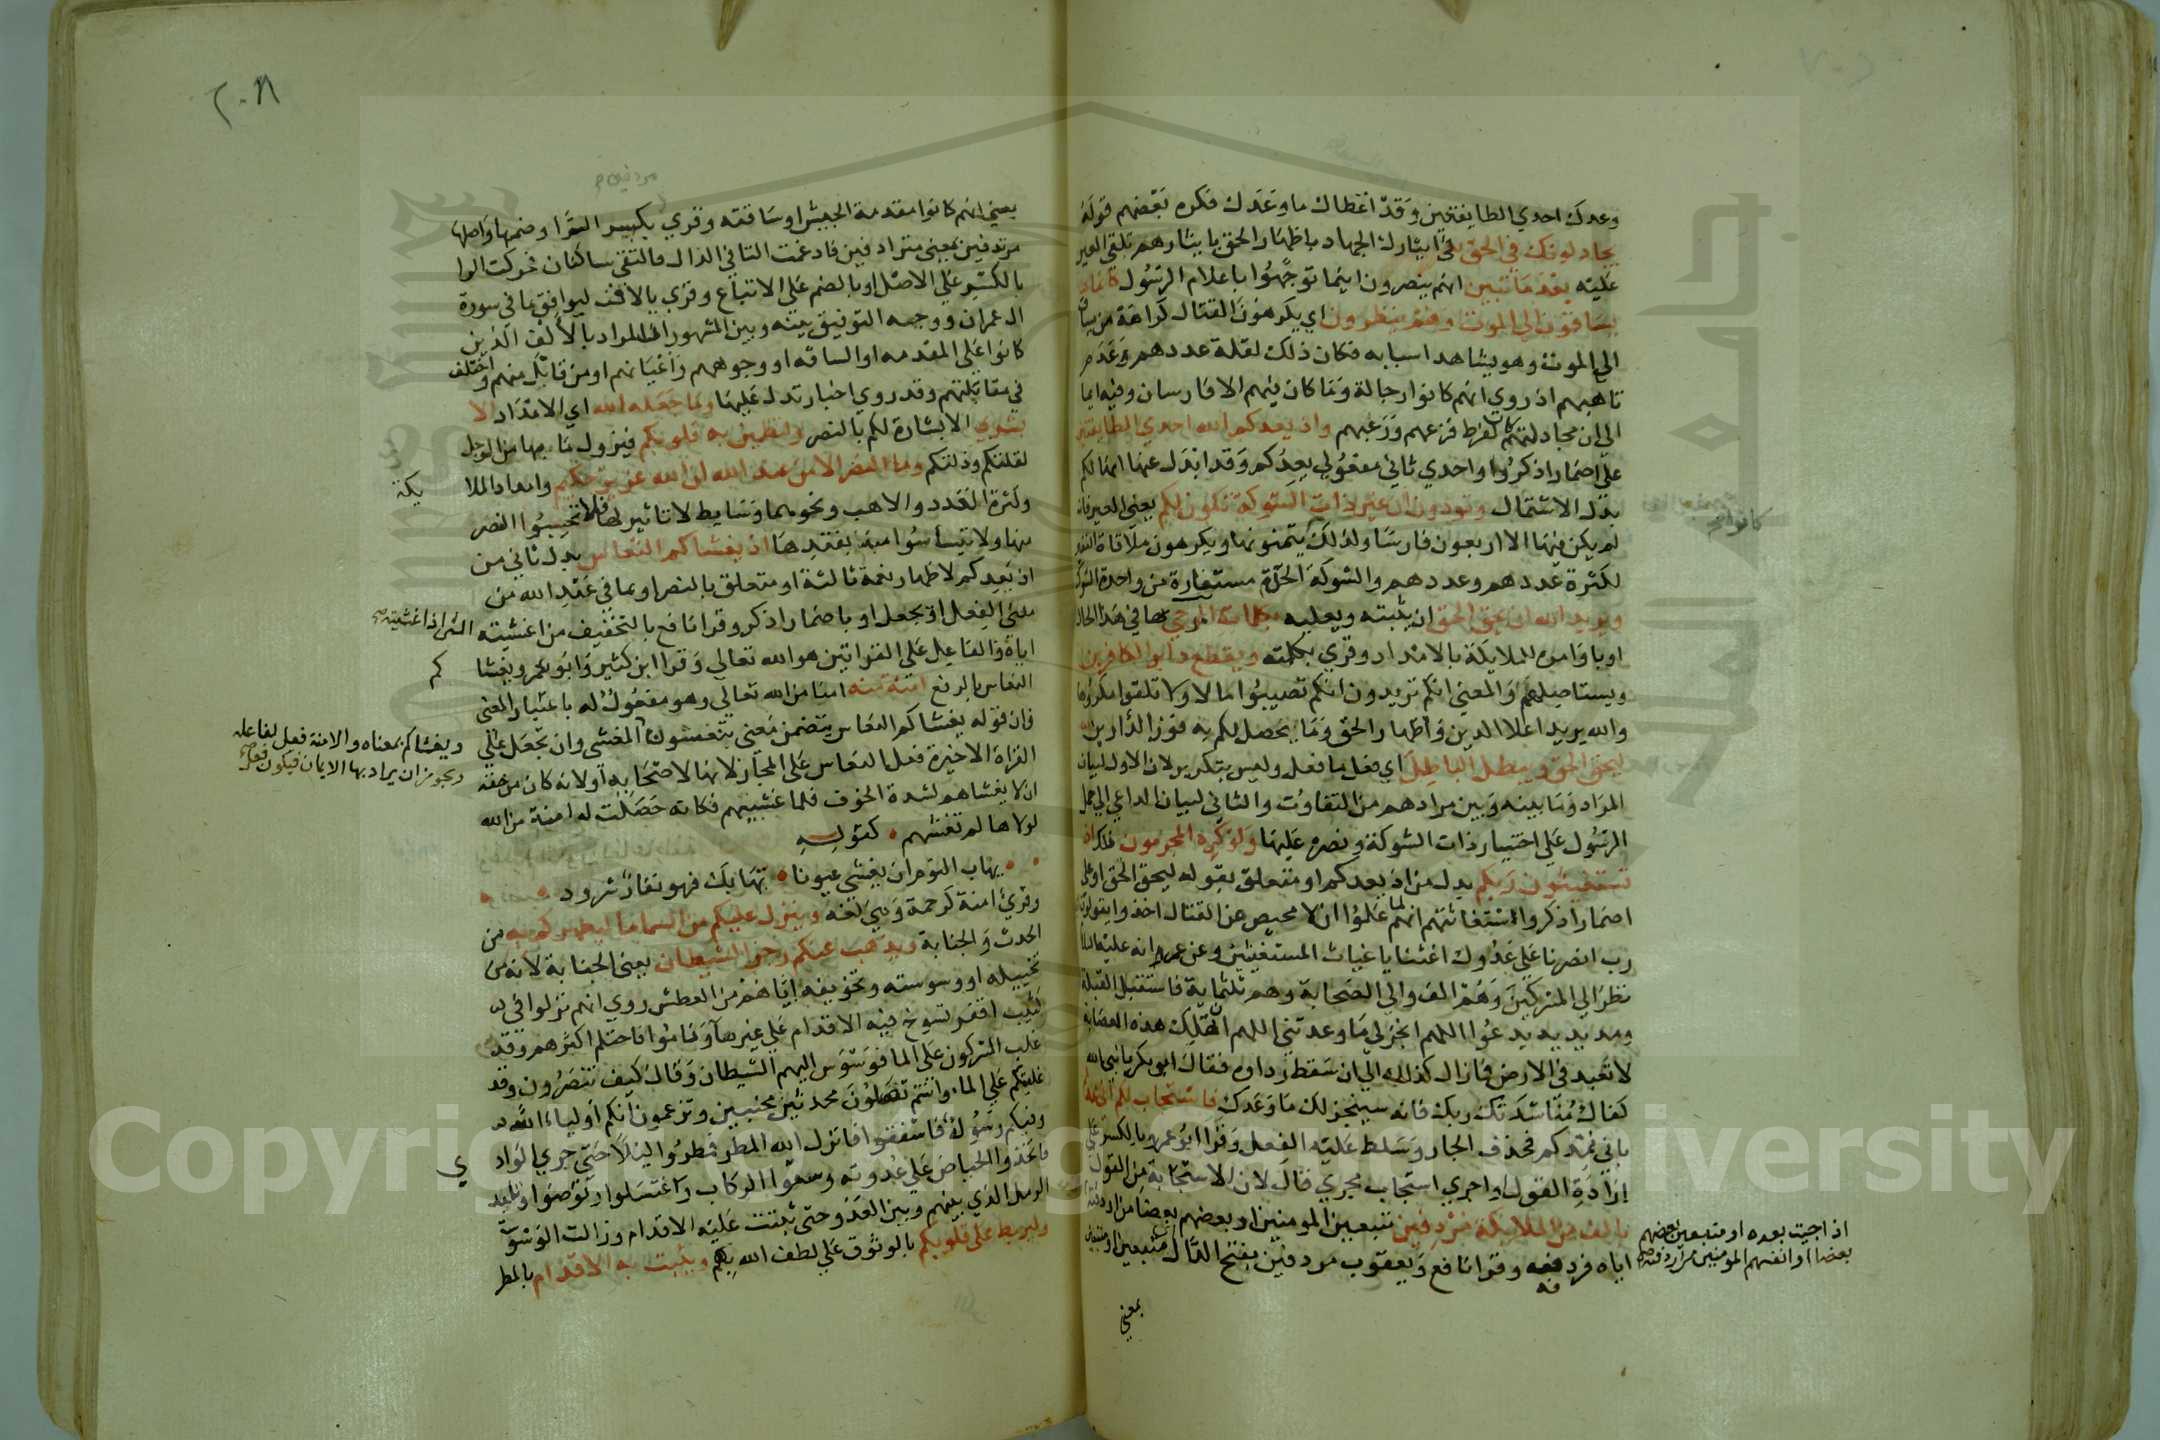 وعدك احدي الطايفتين وقد اعطاك ما وعدك فكره بعضهم قوله
يجادلونك في الحق في ايثارك الجهاد باظهار الحق بايثارهم تلقي العير
عليه بعد ما تبين انهم ينصرون اينما توجهوا باعلام الرسول كانما
يساقون الي الموت وهم ينظرون اي يكرهون القتال كراهة من يساق
الي الموت وهو يشاهد اسبابه فكان ذلك لقلة عددهم وعدم
تاهبهم اذ روي انهم كانوا رجالة وما كان فيهم الا فارسان وفيه ايما
الي ان مجادلتهم كان لفرط فزعهم ورعبهم واذ يعدكم الله احدي الطايفتين
علي اضمار اذكروا واحدي ثاني مفعولي يعدكم وقد ابدل عنها انها لكم
بدل الاشتمال وتودون ان غير ذات الشوكة تكون لكم يعني العير فانه
لم يكن فيها الا اربعون فارسا ولذلك يتمنونها ويكرهون ملاقاة النفير
لكثرة عددهم وعددهم والشوكة الحدة مستعارة من واحدة الشوك
ويريد الله ان يحق الحق ان يثبته ويعليه بكلماته الموحي بها في هذا الحال
او باوامره للملايكة بالامداد وقري بكلمته ويقطع دابر الكافرين
ويستاصلهم والمعني انكم تريدون ان تصيبوا مالا ولا تلقوا مكروها
والله يريد اعلا الدين واظهار الحق وما يحصل لكم به فوز الدارين
ليحق الحق ويبطل الباطل اي فعل ما فعل وليس بتكرير لان الاول لبيان
المراد وما بينه وبين مرادهم من التفاوت والثاني لبيان الداعي الي حمل
الرسول علي اختيار ذات الشوكة ونصره عليها ولو كره المجرمون ذلك اذ
تستغيثون ربكم بدل من اذ يعدكم او متعلق بقوله ليحق الحق او علي
اضمار اذكر واستغاثتهم انهم لما علموا ان لا محيص عن القتال اخذوا يقولون
رب انصرنا علي عدوك اغثنا يا غياث المستغيثين وعن عمر انه عليه السلام
نظر الي المشركين وهم الف والي الصحابة وهم ثلثماية فاستقبل القبلة
ومد يديه يدعوا اللهم انجز لي ما وعدتني اللهم ان تهلك هذه العصابة
لا تعبد في الارض فما زال كذلك الي ان سقط رداوه فقال ابو بكر يا نبي الله
كفاك مناشدتك ربك فانه سينجز لك ما وعدك فاستجاب لكم اني
باني ممدكم فحذف الجار وسلط عليه الفعل وقرا ابو عمرو بالكسر علي
ارادة القول او اجري استجاب مجري قال لان الاستجابة من القول
بالف من الملايكة مردفين متبعين المومنين او بعضهم بعضا من اردفته
اياه فردفه وقرا نافع ويعقوب مردفين بفتح الدال متبعين او متبعين
فه
بمعني
كانوا
اذا جيت بعده او متبعين بعضهم
بعضا او انفسهم المومنين من اردفته
٢٠٨
مردفين
يعني انهم كانوا مقدمة الجيش او ساقته وقري بكسر الرا وضمها واصلها
مرتدفين بمعني مترادفين فادغمت التا في الدال فالتقي ساكنان فحركت الرا
بالكسر علي الاصل او بالضم علي الاتباع وقري بالاف ليوافق ما في سورة
ال عمران ووجه التوفيق بينه وبين المشهور ان المراد بالالف الذين
كانوا علي المقدمه او الساقه او وجوههم واعيانهم او من قاتل منهم واختلف
في مقاتلتهم وقد روي اخبار تدل عليها وما جعله الله اي الامداد الا
بشري الا بشارة لكم بالنصر ولتطمين به قلوبكم فيزول ما بها من الوجل
لقلتكم وذلتكم وما النصر الا من عند الله ان الله عزيز حكيم وامداد الملا
يكة
وكثرة العدد والاهب ونحوهما وسايط لا تاثير لها فلا تحسبوا النصر
منها ولا تيأسوا منه بفقدها اذ يغشاكم النعاس بدل ثاني من
اذ يعدكم لاظهار نعمة ثالثة او متعلق بالنصر او بما في عند الله من
معني الفعل او بجعل او باضمار اذكر وقرا نافع بالتخفيف من اغشيته
الشي اذا غشيته
اياه والفاعل علي القراتين هو الله تعالي وقرا ابن كثير وابو عمرو يغشا
كم
النعاس بالرفع امنة منه امنا من الله تعالي وهو مفعول له باعتبار المعني
فان قوله يغشاكم النعاس يتضمن معني يتغشون المغشي وان تجعل علي
ويغشاكم بمعناه والامنة فعل لفاعله
ويجوز ان يراد بها الايمان فيكون فعل
القراة الاخيرة فعل النعاس علي المجاز لانها لاصحابه او لانه كان من حقه
ان لا يغشاهم لشدة الخوف فلما غشيهم فكانه حصلت له امنة من الله
لولاها لم تغشهم كقوله
يهاب النوم ان يغشي عيونا تهابك فهو نفار شرود
وقري امنة كرحمة وهي لغة وينزل عليكم من السما ما ليطهركم به من
الحدث والجنابة ويذهب عنكم رجز الشيطان يعني الجنابة لانه من
تخييله او وسوسته وتخويفه اياهم من العطش روي انهم نزلوا في
كثيب اعفر تسوخ فيه الاقدام علي غير ما وناموا فاحتلم اكثرهم وقد
غلب المشركون علي الما فوسوس اليهم الشيطان وقال كيف تنصرون وقد
غلبتكم علي الماء وانتم تصلون محدثين مجنبين وتزعمون انكم اولياء الله
وفيكم رسوله فاشفقوا فانزل الله المطر فمطروا ليلا حتي جري الواد
ي
فاتخذوا الحياض علي عدوته وسقوا الركاب واغتسلوا وتوضوا وتلبد
الرمل الذي بينهم وبين العدو حتي ثبتت عليه الاقدام وزالت الوسوسة
وليربط علي قلوبكم بالوثوق علي لطف الله بكم ويثبت به الاقدام بالمطر
Copyright © King Saud University